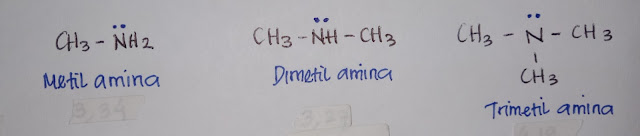 CH3 - N̈H2
Metil amina
3,34
CH3 - N̈H - CH3
Dimetil amina
3,27
CH3 - N̈ - CH3
CH3
Trimetil amina